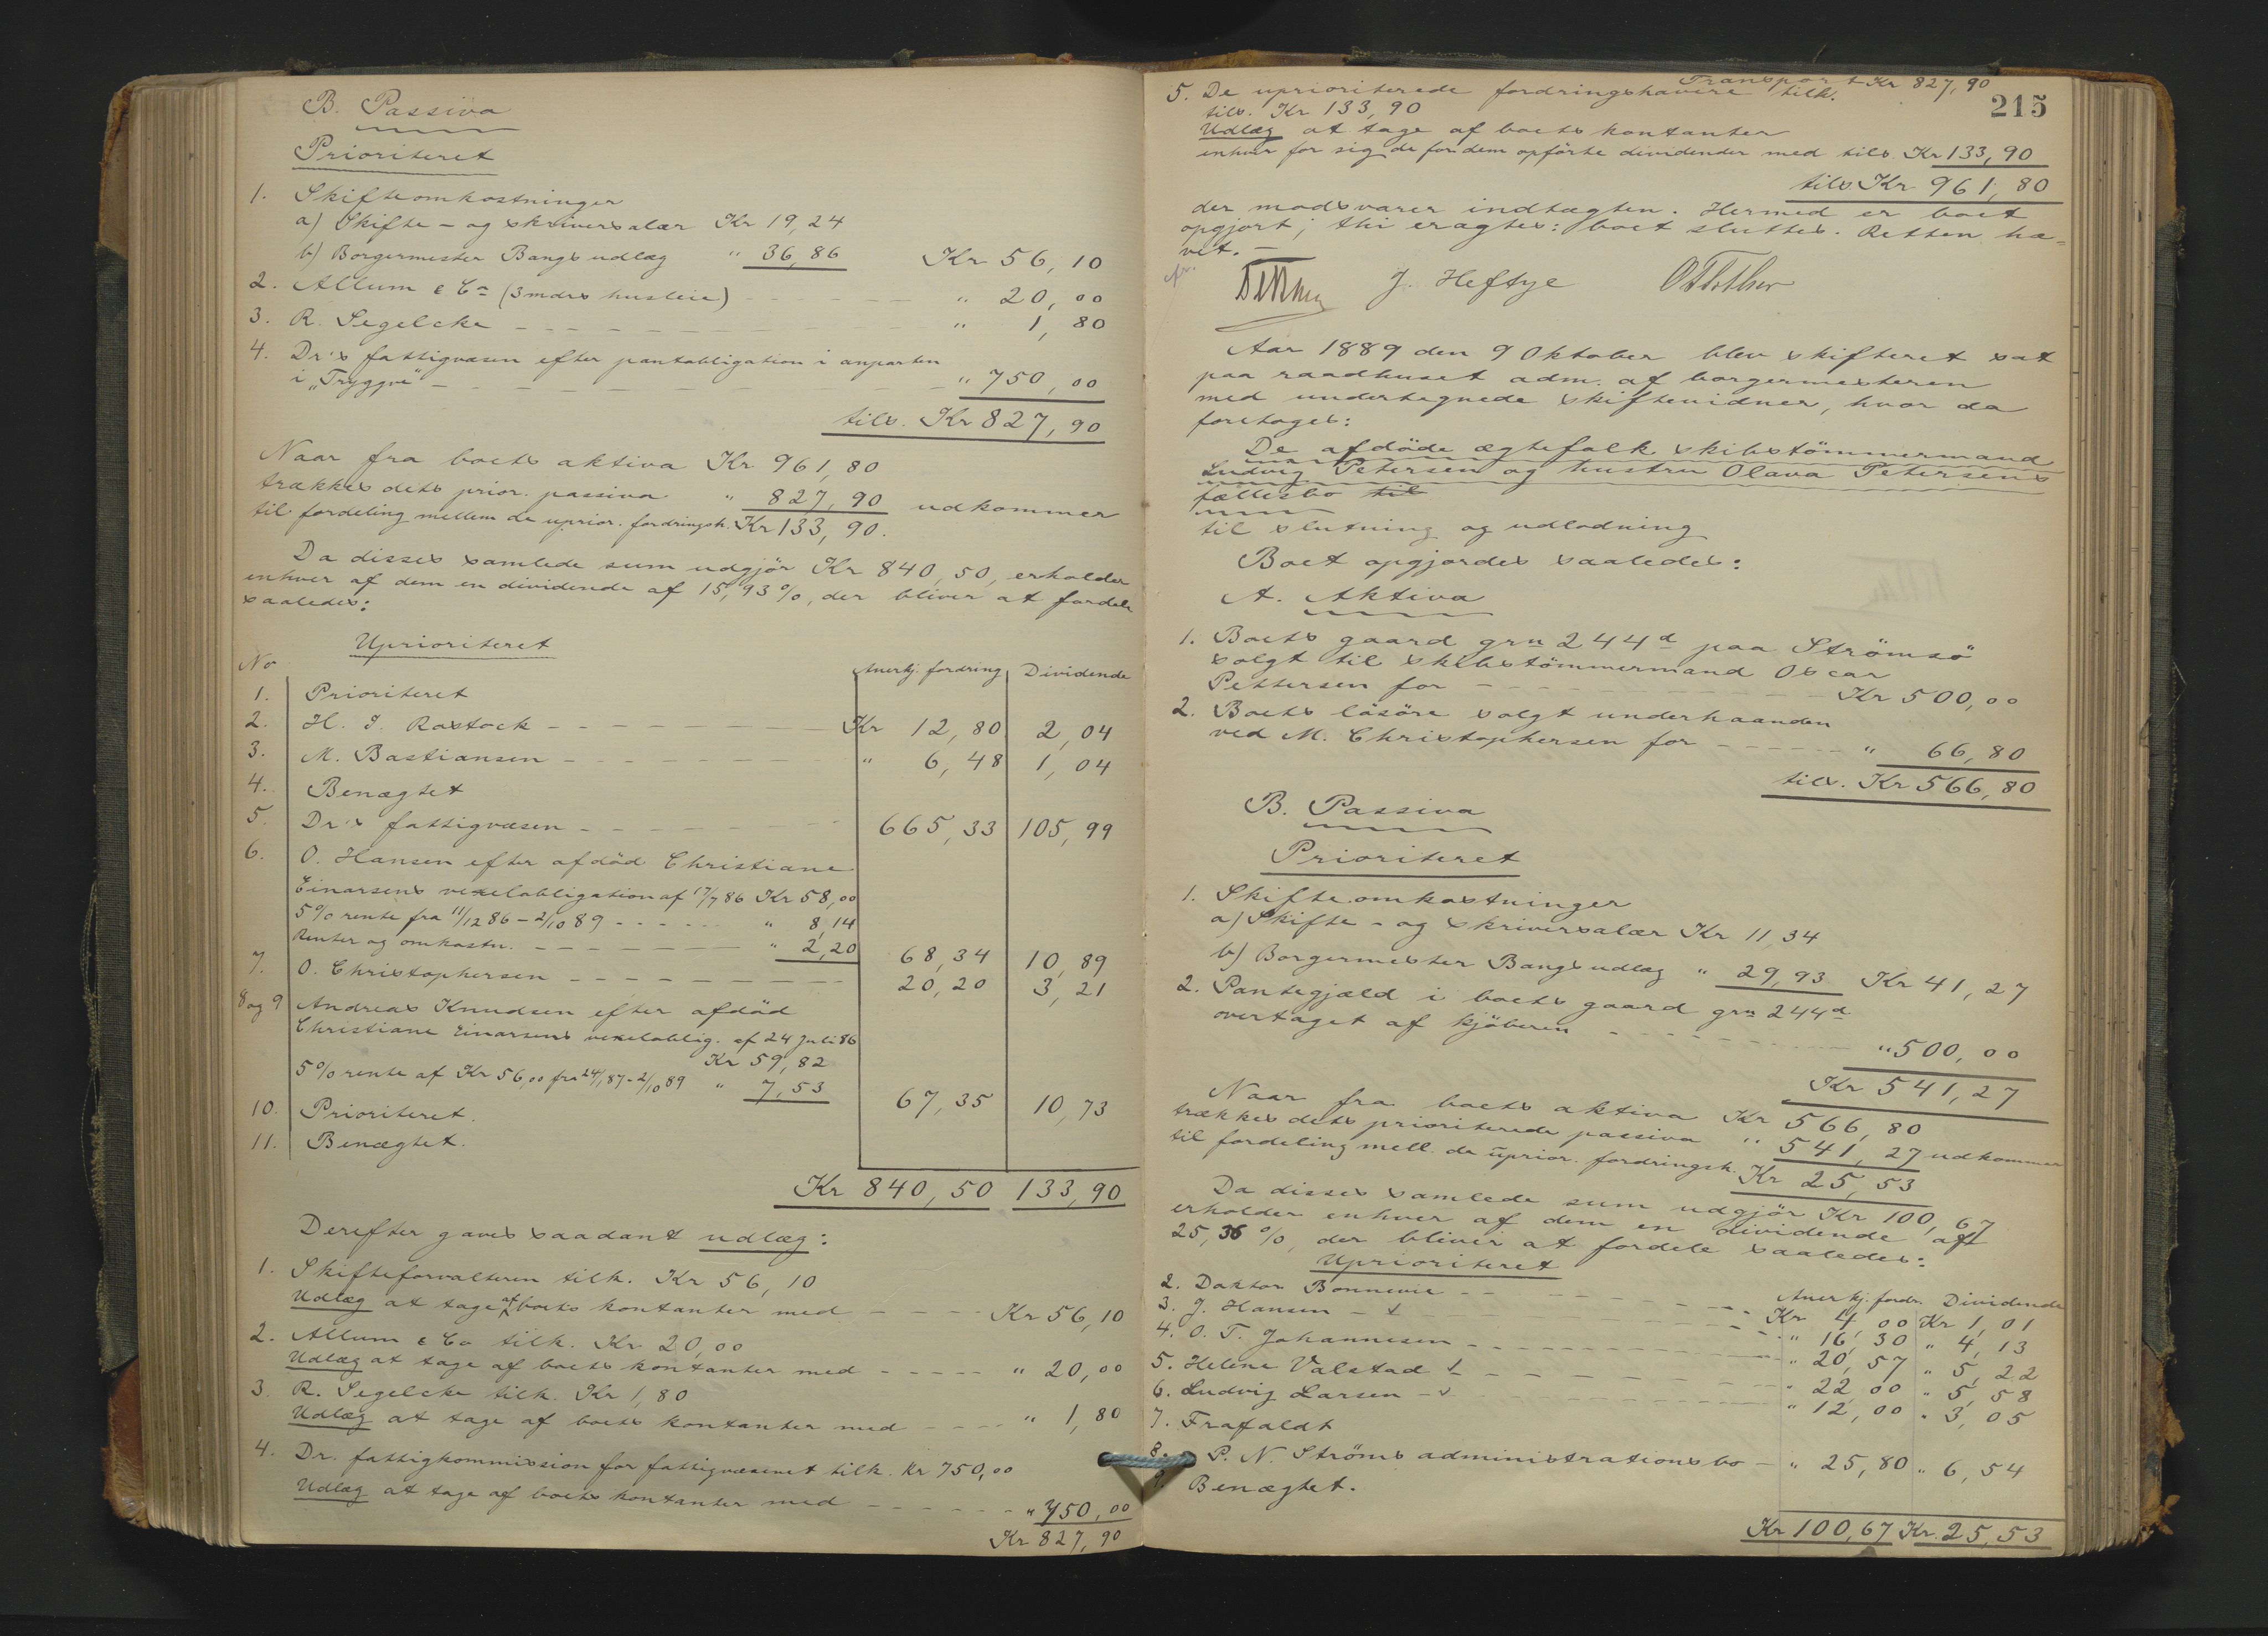 B. Passiva
Prioriteret
1. Skifteomkostninger
a) Skifte- og skriversalær Kr 19,24
b) Borgermester Bangs udlæg " 36,86 Kr 56,10
2. Allum & Co (3 mdrs husleie) " 20,00
3. R. Segelcke " 1,80
4. Dr's fattigvæsen efter pantobligation i anparten
i "Tryggve" " 750,00
tils. Kr 827,90
Naar fra boets aktiva Kr 961,80
trækkes dets prior. passiva " 827,90 udkommer
til fordeling mellem de uprior. fordringsh. Kr 133,90.
Da disses samlede sum udgjör Kr 840,50, erholder
enhver af dem en dividende af 15,93 %, der bliver at fordele
saaledes:
Uprioriteret
No Anerkj. fordring Dividende
1. Prioriteret
2. H. J. Rostock Kr 12,80 2,04
3. M. Bastiansen " 6,48 1,04
4. Benægtet
5. Dr's fattigvæsen 665,33 105,99
6. O. Hansen efter afdöd Christiane
Einarsens vexelobligation af 17/7 86 Kr 58,00
5 % rente fra 11/12 86 - 2/10 89 " 8,14
Renter og omkostn. " 2,20 68,34 10,89
7. O. Christophersen 20,20 3,21
8 og 9 Andreas Knudsen efter afdöd
Christiane Einarsens vexeloblig. af 24 Juli 86
Kr 59,82
5 % rente af Kr 56,00 fra 24/1 87 - 2/10 89 " 7,53 67,35 10,73
10. Prioriteret.
11. Benægtet.
Kr 840,50 133,90
Derefter gaves saadant udlæg:
1. Skifteforvalteren tilk. Kr 56,10
Udlæg at tage af boets kontanter med Kr 56,10
2. Allum & Co tilk. Kr 20,00
Udlæg at tage af boets kontanter med " 20,00
3. R. Segelcke tilk. Kr 1,80
Udlæg at tage af boets kontanter med " 1,80
4. Dr. fattigkommission for fattigvæsenet tilk. Kr 750,00
Udlæg at tage af boets kontanter med " 750,00
Kr 827,90
Transport Kr 827,90
215
5. De uprioriterede fordringshavere tilk.
tils. Kr 133,90
Udlæg at tage af boets kontanter
enhver for sig de for dem opförte dividender med tils. Kr 133,90
tils. Kr 961,80
der modsvarer indtægten. Hermed er boet
opgjort; thi eragtes: boet sluttes. Retten hæ-
vet.
J. Heftye
Aar 1889 den 9 Oktober blev skifteret sat
paa raadhuset adm. af borgermesteren
med undertegnede skiftevidner, hvor da
foretoges:
De afdöde ægtefolk skibstömmermand
Ludvig Petersen og hustru Olava Petersens
fællesbo til
til slutning og udlodning
Boet opgjordes saaledes:
A. Aktiva
1. Boets gaard grn 244d paa Strömsö
solgt til skibstömmermand Oscar
Pettersen for Kr 500,00
2. Boets lösöre solgt underhaanden
ved M. Christophersen for " 66,80
tils. Kr 566,80
B. Passiva
Prioriteret
1. Skifteomkostninger
a) Skifte- og skriversalær Kr 11,34
b) Borgermester Bangs udlæg " 29,93 Kr 41,27
2. Pantegjæld i boets gaard grn 244d
overtaget af kjöberen " 500,00
Kr 541,27
Naar fra boets aktiva Kr 566,80
trækkes dets prioriterede passiva " 541,27 udkommer
til fordeling mell. de uprior. fordringsh. Kr 25,53
Da disses samlede sum udgjör Kr 100,67
erholder enhver af dem en dividende af
25,36 %, der bliver at fordele saaledes:
Uprioriteret
Anerkj. fordr. Dividende
2. Doktor Bonnevie Kr 4,00 Kr 1,01
3. J. Hansen " 16,30 " 4,13
4. O. T. Johannesen " 20,57 " 5,22
5. Helene Valstad " 22,00 " 5,58
6. Ludvig Larsen " 12,00 " 3,05
7. Frafaldt
8. P. N. Ströms administrationsbo " 25,80 " 6,54
9. Benægtet.
Kr 100,67 Kr. 25,53